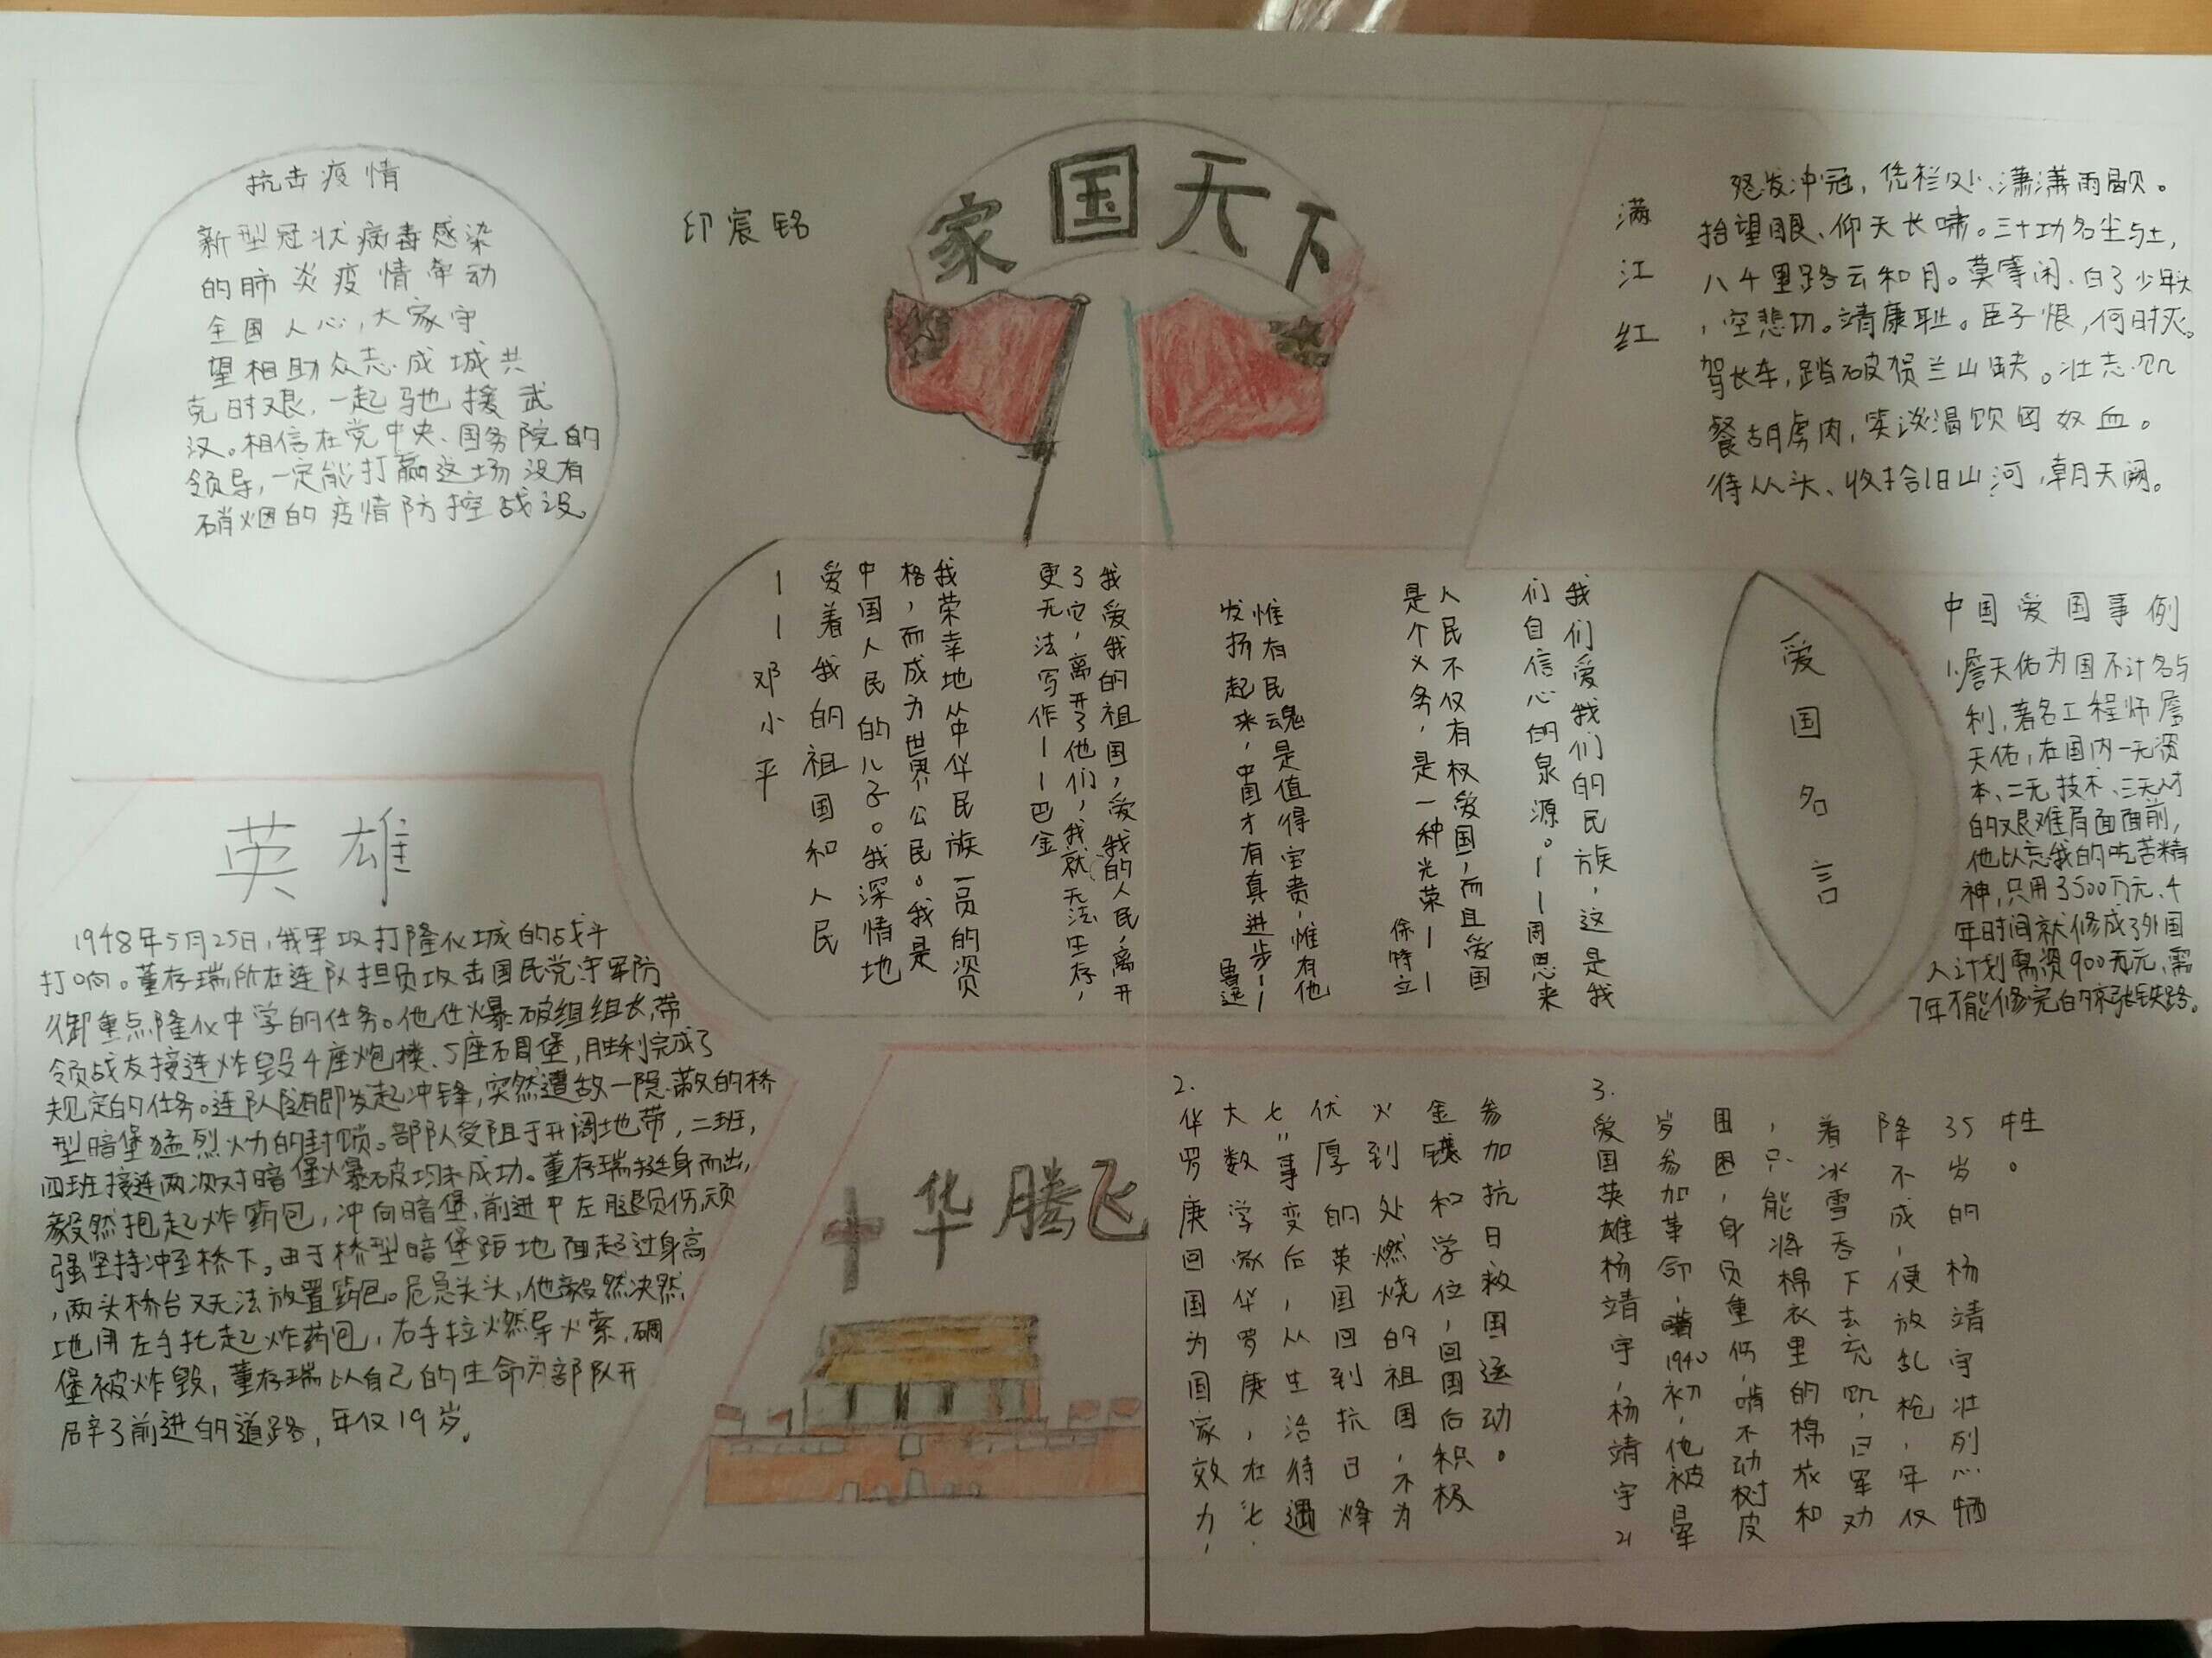 家国天下
印宸铭
抗击疫情
新型冠状病毒感染
的肺炎疫情牵动
全国人心,大家守
望相助众志成城共
克时艰,一起驰援武
汉。相信在党中央、国务院的
领导,一定能打赢这场没有
硝烟的疫情防控战
满江红
怒发冲冠,凭栏处、潇潇雨歇。
抬望眼、仰天长啸。三十功名尘与土,
八千里路云和月。莫等闲、白了少年头
,空悲切。靖康耻。臣子恨,何时灭。
驾长车,踏破贺兰山缺。壮志饥
餐胡虏肉,笑谈渴饮匈奴血。
待从头、收拾旧山河,朝天阙。
爱国名言
我们爱我们的民族,这是我
们自信心的泉源。——周恩来
人民不仅有权爱国,而且爱国
是个义务,是一种光荣——徐特立
惟有民魂是值得宝贵,惟有他
发扬起来,中国才有真进步——鲁迅
我爱我的祖国,爱我的人民,离开
了它,离开了他们,我就无法生存,
更无法写作——巴金
我荣幸地从中华民族一员的资
格,而成为世界公民。我是
中国人民的儿子。我深情地
爱着我的祖国和人民
——邓小平
中国爱国事例
1.詹天佑为国不计名与
利,著名工程师詹
天佑,在国内一无资
本、二无技术、三无人才
的艰难局面面前,
他以忘我的吃苦精
神,只用了500万元、4
年时间就修成了外国
人计划需资900万元、需
7年才能修完的京张铁路。
英雄
1948年5月25日,我军攻打隆化城的战斗
打响。董存瑞所在连队担负攻击国民党守军防
御重点隆化中学的任务。他任爆破组组长,带
领战友接连炸毁4座炮楼、5座碉堡,胜利完成了
规定的任务。连队随即发起冲锋,突然遭敌一隐蔽的桥
型暗堡猛烈火力的封锁。部队受阻于开阔地带,二班,
四班接连两次对暗堡爆破均未成功。董存瑞挺身而出,
毅然抱起炸药包,冲向暗堡,前进中左腿负伤,顽
强坚持冲至桥下。由于桥型暗堡距地面超过身高
,两头桥台又无法放置药包。危急关头,他毅然决然
地用左手托起炸药包,右手拉燃导火索,碉
堡被炸毁,董存瑞以自己的生命为部队开
辟了前进的道路,年仅19岁。
中华腾飞
2.
华罗庚回国为国家效力,
大数学家华罗庚,在"七·
七"事变后,从生活待遇
优厚的英国回到抗日烽
火到处燃烧的祖国,不为
金钱和学位,回国后积极
参加抗日救国运动。
3.
爱国英雄杨靖宇,杨靖宇21
岁参加革命,1940初,他被晕
围困,身负重伤,啃不动树皮
,只能将棉衣里的棉放和
着冰雪吞下去充饥,日军劝
降不成,便放乱枪,年仅
35岁的杨靖宇壮烈牺
牲。